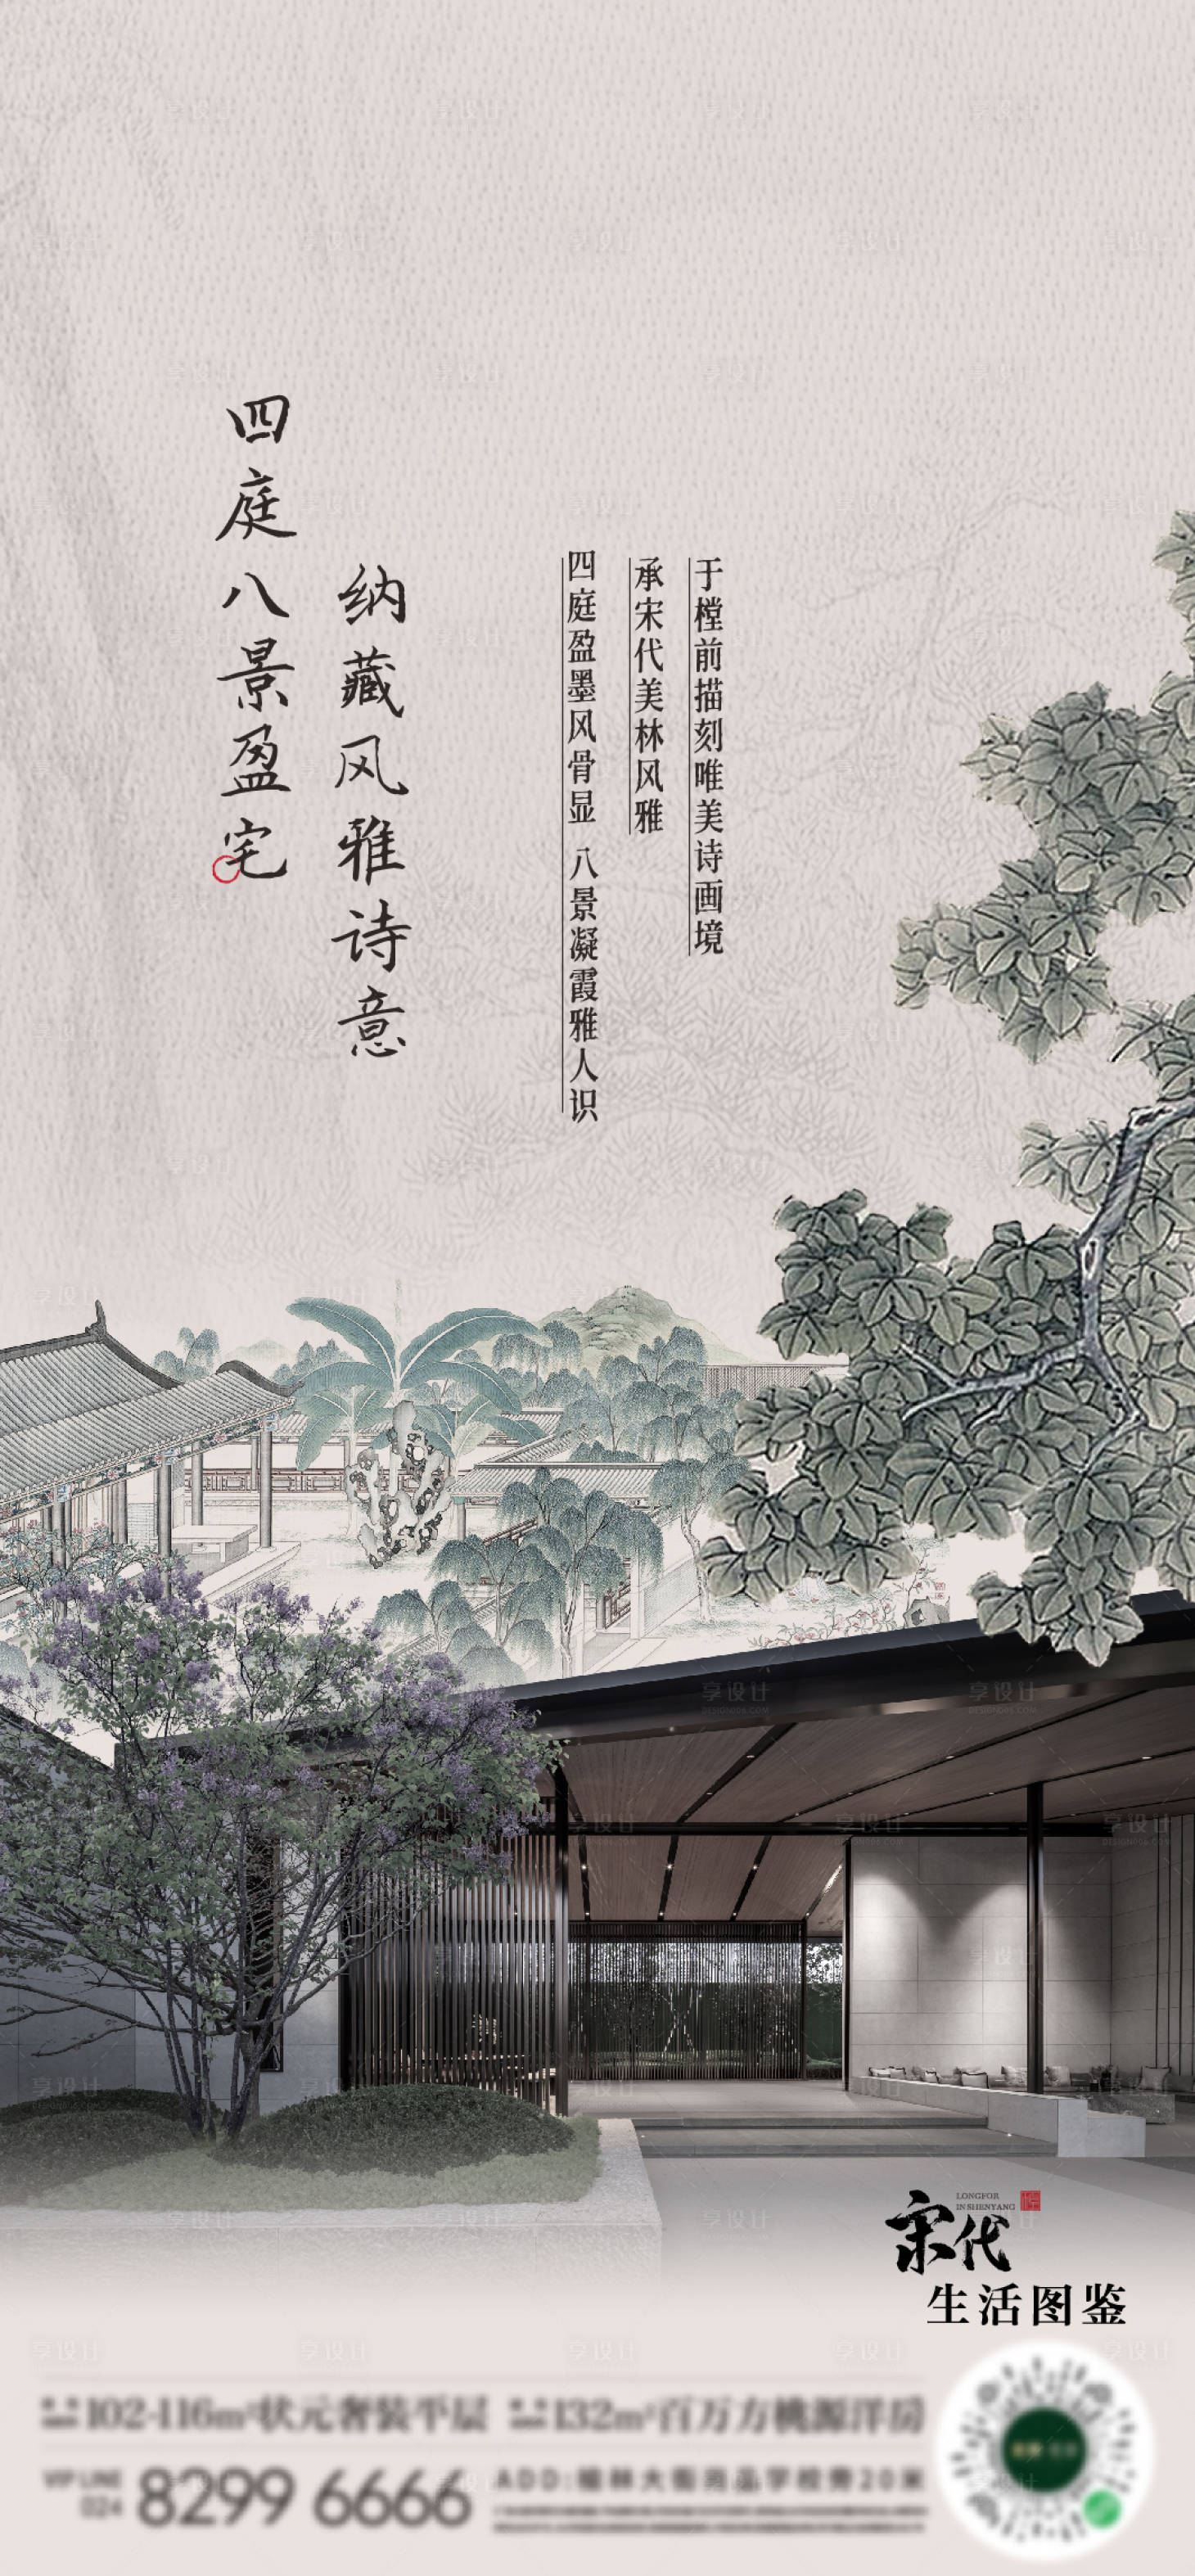 四庭八景盈宅
纳藏风雅诗意
于樘前描刻唯美诗画境
承宋代美林风雅
四庭盈墨风骨显 八景凝霞雅人识
LONGFOR
IN SHENYANG
宋代
生活图鉴
102-116m²状元奢装平层
132m²百万方桃源洋房
VIP LINE
024
8299 6666
ADD:榆林大街尚品学校旁20米
享设计
DESIGN006.COM